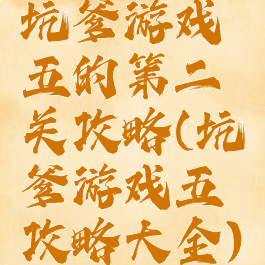 坑爹游戏
五的第二
关攻略(坑
爹游戏五
攻略大全)